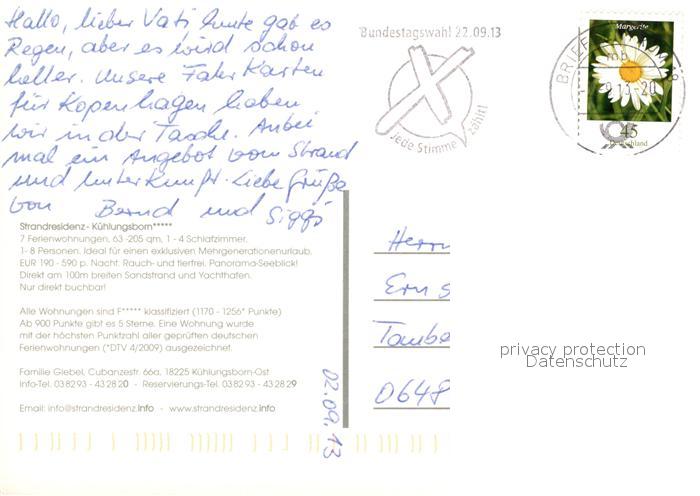 Hallo, lieber Vati heute gab es
Regen, aber es wird schon
heller. Unsere Fahrkarten
für Kopenhagen haben
wir in der Tasche. Anbei
mal ein Angebot vom Strand
und Unterkunft. Liebe Grüße
von Bernd und Siggi
Bundestagswahl 22.09.13
Jede Stimme zählt!
BRIEF
9.13-20
Margerite
45
Deutschland
Strandresidenz - Kühlungsborn*****
7 Ferienwohnungen, 63 -205 qm, 1 - 4 Schlafzimmer,
1- 8 Personen. Ideal für einen exklusiven Mehrgenerationenurlaub.
EUR 190 - 590 p. Nacht. Rauch- und tierfrei. Panorama-Seeblick!
Direkt am 100m breiten Sandstrand und Yachthafen.
Nur direkt buchbar!
Alle Wohnungen sind F***** klassifiziert (1170 - 1256* Punkte)
Ab 900 Punkte gibt es 5 Sterne. Eine Wohnung wurde
mit der höchsten Punktzahl aller geprüften deutschen
Ferienwohnungen (*DTV 4/2009) ausgezeichnet.
Familie Giebel, Cubanzestr. 66a, 18225 Kühlungsborn-Ost
Info-Tel. 03 82 93 - 43 28 20 - Reservierungs-Tel. 03 82 93 - 43 28 29
Email: info@strandresidenz.info - www.strandresidenz.info
02.09.13
Herrn
Ern s
Taube
0648
privacy protection
Datenschutz